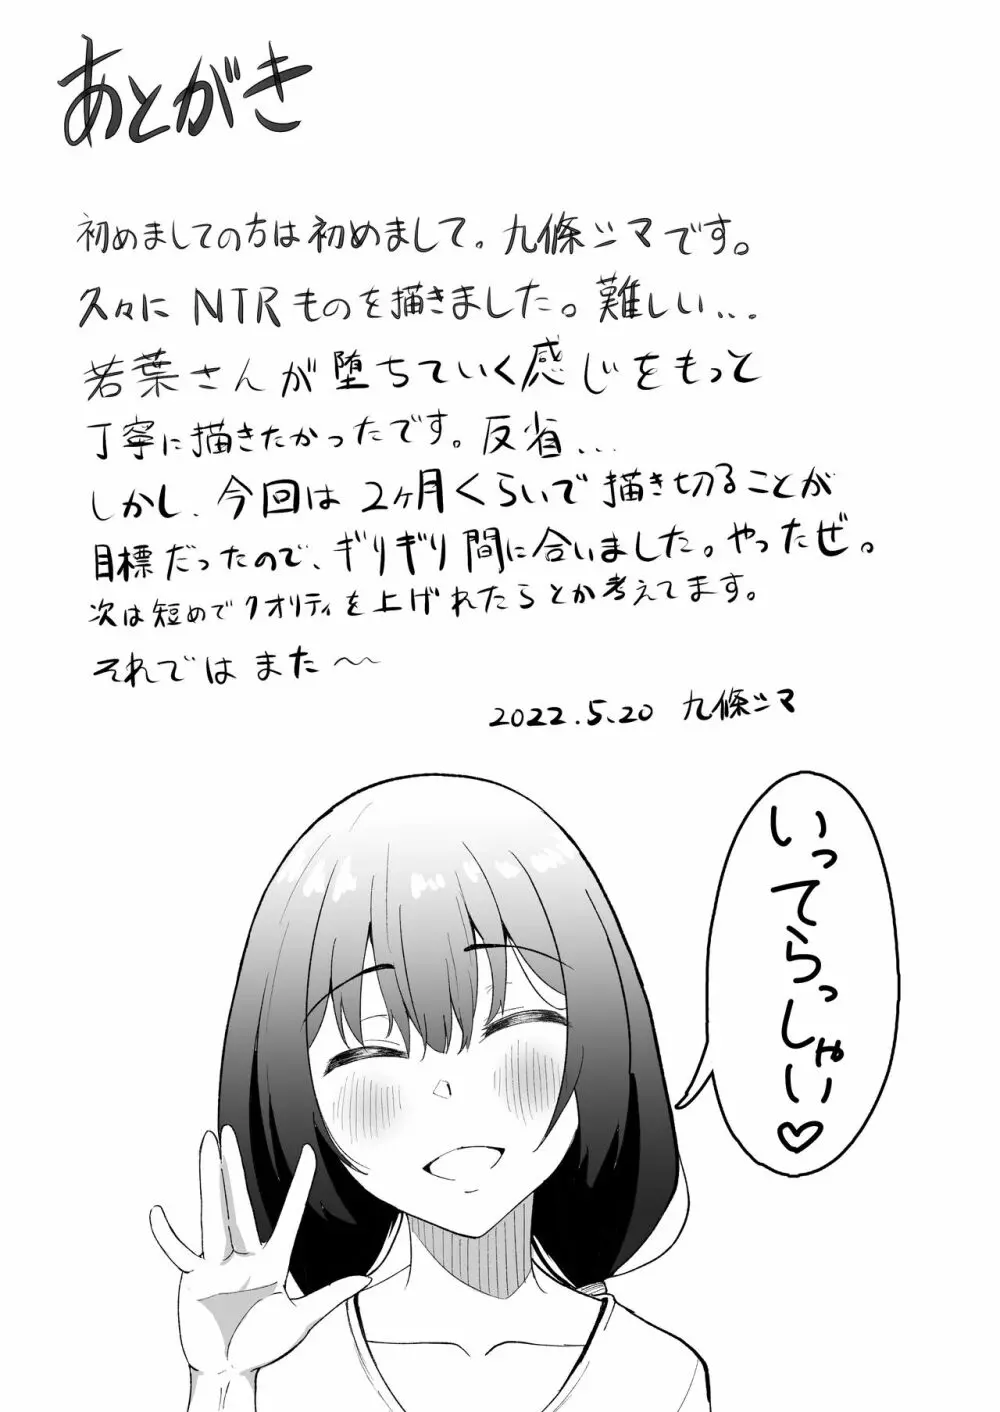 あとがき
初めましての方は初めまして。九條シマです。
久々にNTRものを描きました。難しい...
若葉さんが堕ちていく感じをもっと
丁寧に描きたかったです。反省...
しかし、今回は2ヶ月くらいで描き切ることが
目標だったので、ギリギリ間に合いました。やったぜ。
次は短めでクオリティを上げれたらとか考えてます。
それではまた〜
2022.5.20 九條シマ
いってらっしゃい♡